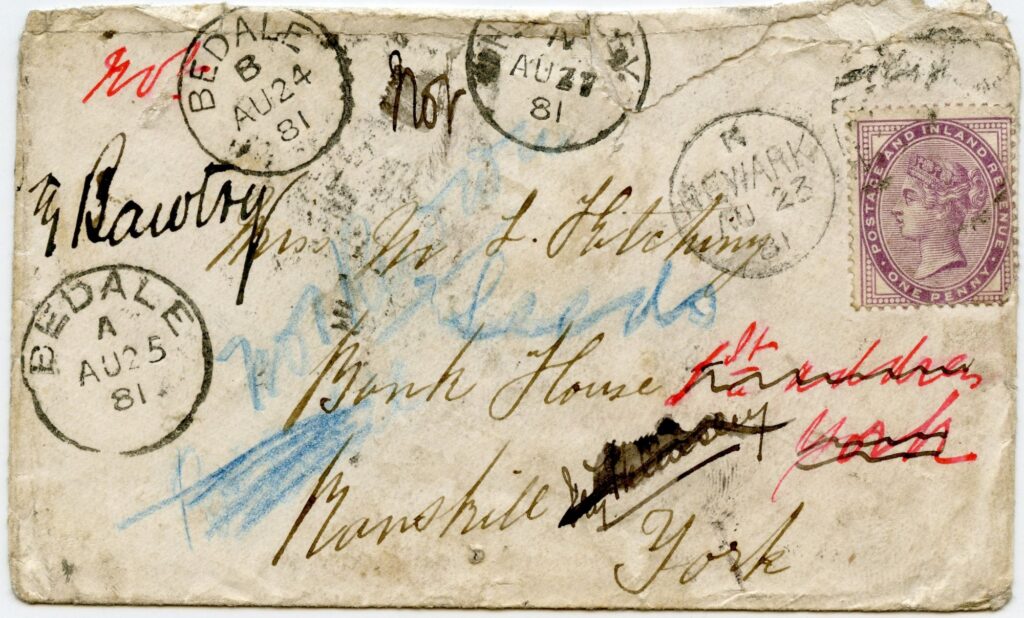 BEDALE
B
AU 24
81
not
not
N
AU 27
81
N
NEWARK
AU 23
81
POSTAGE AND INLAND REVENUE
ONE PENNY
Bawtry
Mrs. M. L. Hitching
Leeds
BEDALE
A
AU 25
81
Bank House
1st address
Ranskill
York
York